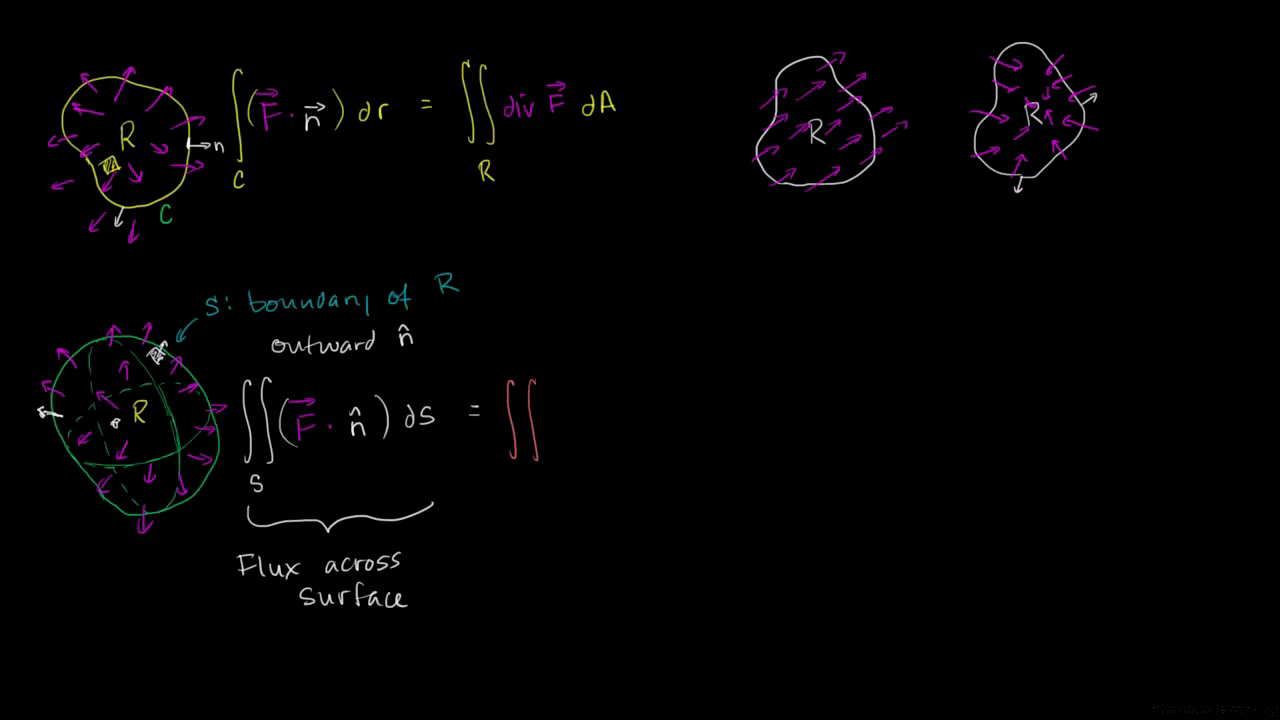 R
n
C
∫_C (F⃗ · n⃗) dr = ∬_R div F⃗ dA
R
R
S: boundary of R
outward n̂
R
∬_S (F⃗ · n̂) dS = ∬
Flux across
surface